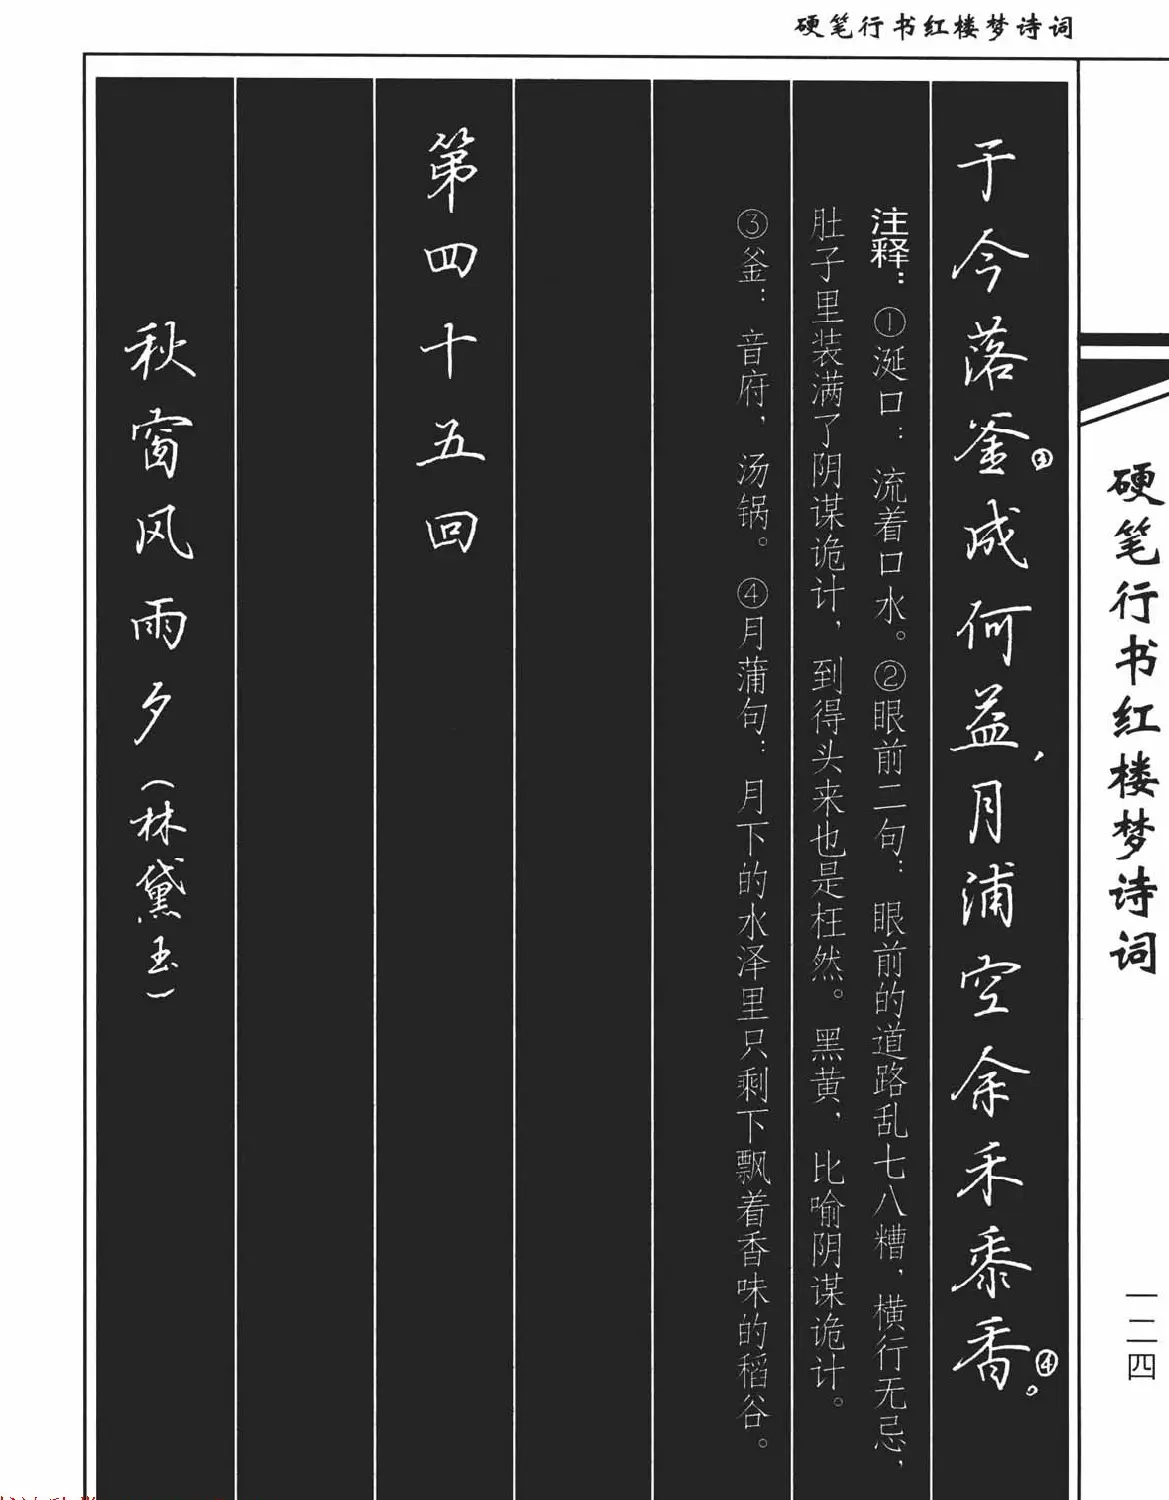 硬笔行书红楼梦诗词
于今落釜③成何益，月浦空余禾黍香④。
注释：①涎口：流着口水。②眼前二句：眼前的道路乱七八糟，横行无忌，
肚子里装满了阴谋诡计，到得头来也是枉然。黑黄，比喻阴谋诡计。
③釜：音府，汤锅。④月蒲句：月下的水泽里只剩下飘着香味的稻谷。
第四十五回
秋窗风雨夕（林黛玉）
硬笔行书红楼梦诗词
一二四